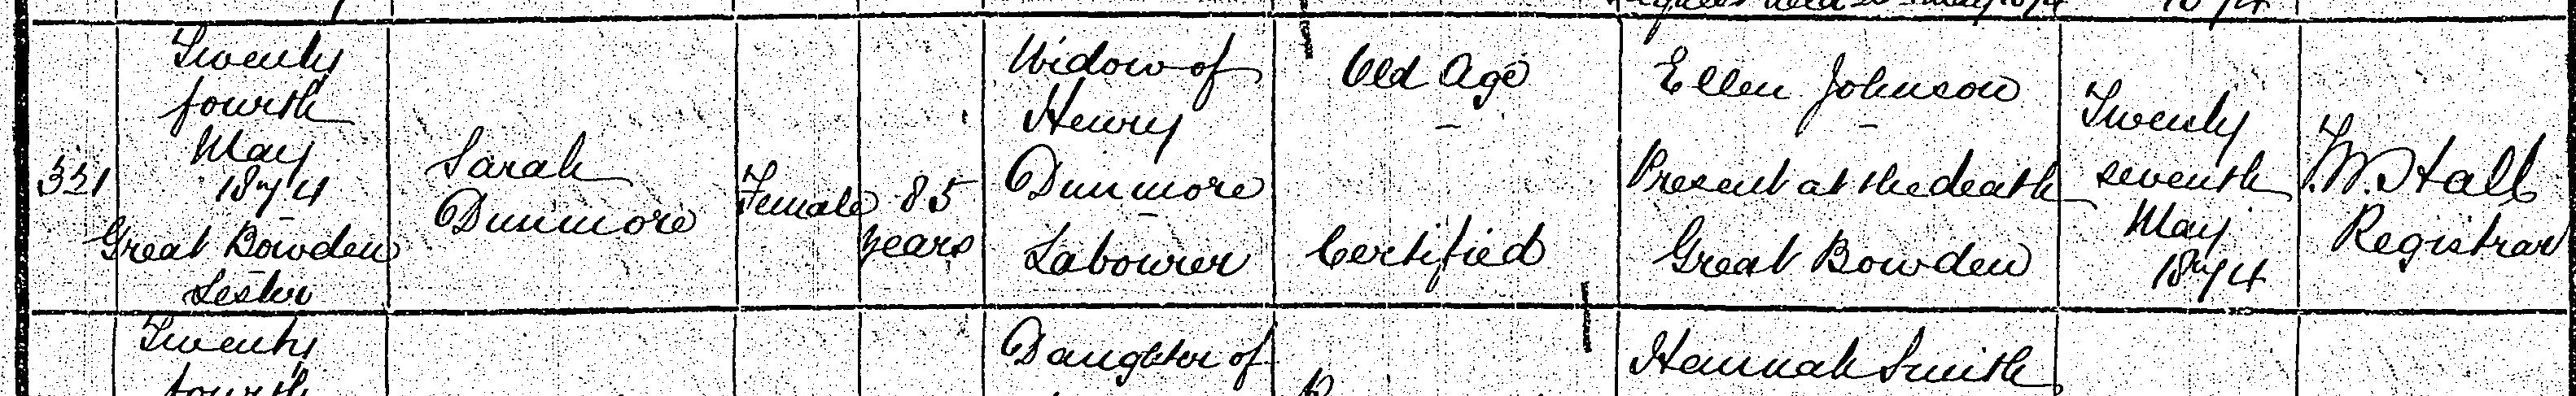 331
Twenty
fourth
May
1874
Great Bowden
Lester
Sarah
Dunmore
Female
85
years
Widow of
Henry
Dunmore
Labourer
Old Age
Certified
Ellen Johnson
Present at the death
Great Bowden
Twenty
seventh
May
1874
Registrar
Twenty
fourth
Daughter of
Hannah Smith